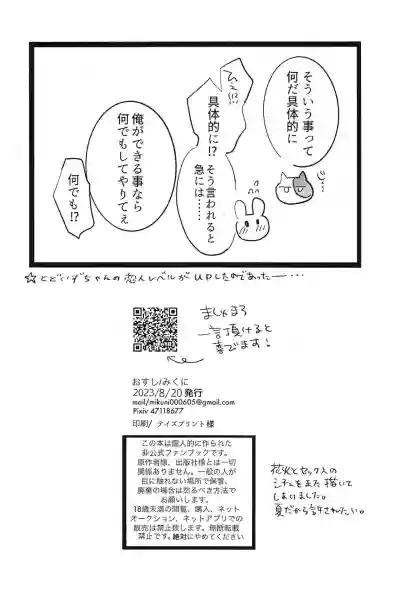 そういう事って
何だ具体的に
具体的に!?
そう言われると
急には……
俺ができる事なら
何でもしてやりてえ
何でも!?
☆とどいずちゃんの恋人レベルがUPしたのであった…
ましゅまろ
一言頂けると
喜びます!
おすし/みくに
2023/8/20 発行
mail/mikuni000605@gmail.com
Pixiv 47118677
印刷/ テイズプリント様
この本は個人的に作られた
非公式ファンブックです。
原作者様、出版社様とは一切
関係ありません。一般の人が
目に触れない場所で保管、
廃棄の場合は然るべき方法で
お願いします。
18歳未満の閲覧、購入、ネット
オークション、ネットアプリでの
販売は禁止致します。無断転載
禁止です。絶対にやめてください
花火とセックスの
シチュをまた描いて
しまいました。
夏だから許されたい。